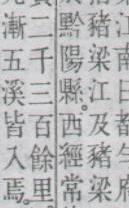 豬梁江及豬梁
黔陽縣。西經常
二千三百餘里
漸五溪皆入焉。